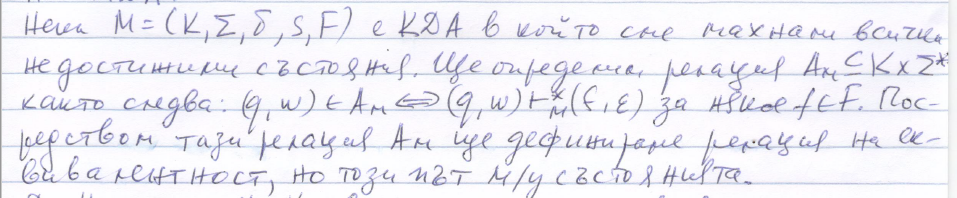 Нека M=(K,Σ,δ,s,F) е КДА в който сме махнали всички
недостижими състояния. Ще определим релация Aₘ⊆K×Σ*
както следва: (q,w)∈Aₘ⇔(q,w)⊢*ₘ(f,ε) за някое f∈F. Пос-
редством тази релация Aₘ ще дефинираме релация на ек-
вивалентност, но този път м/у състоянията.